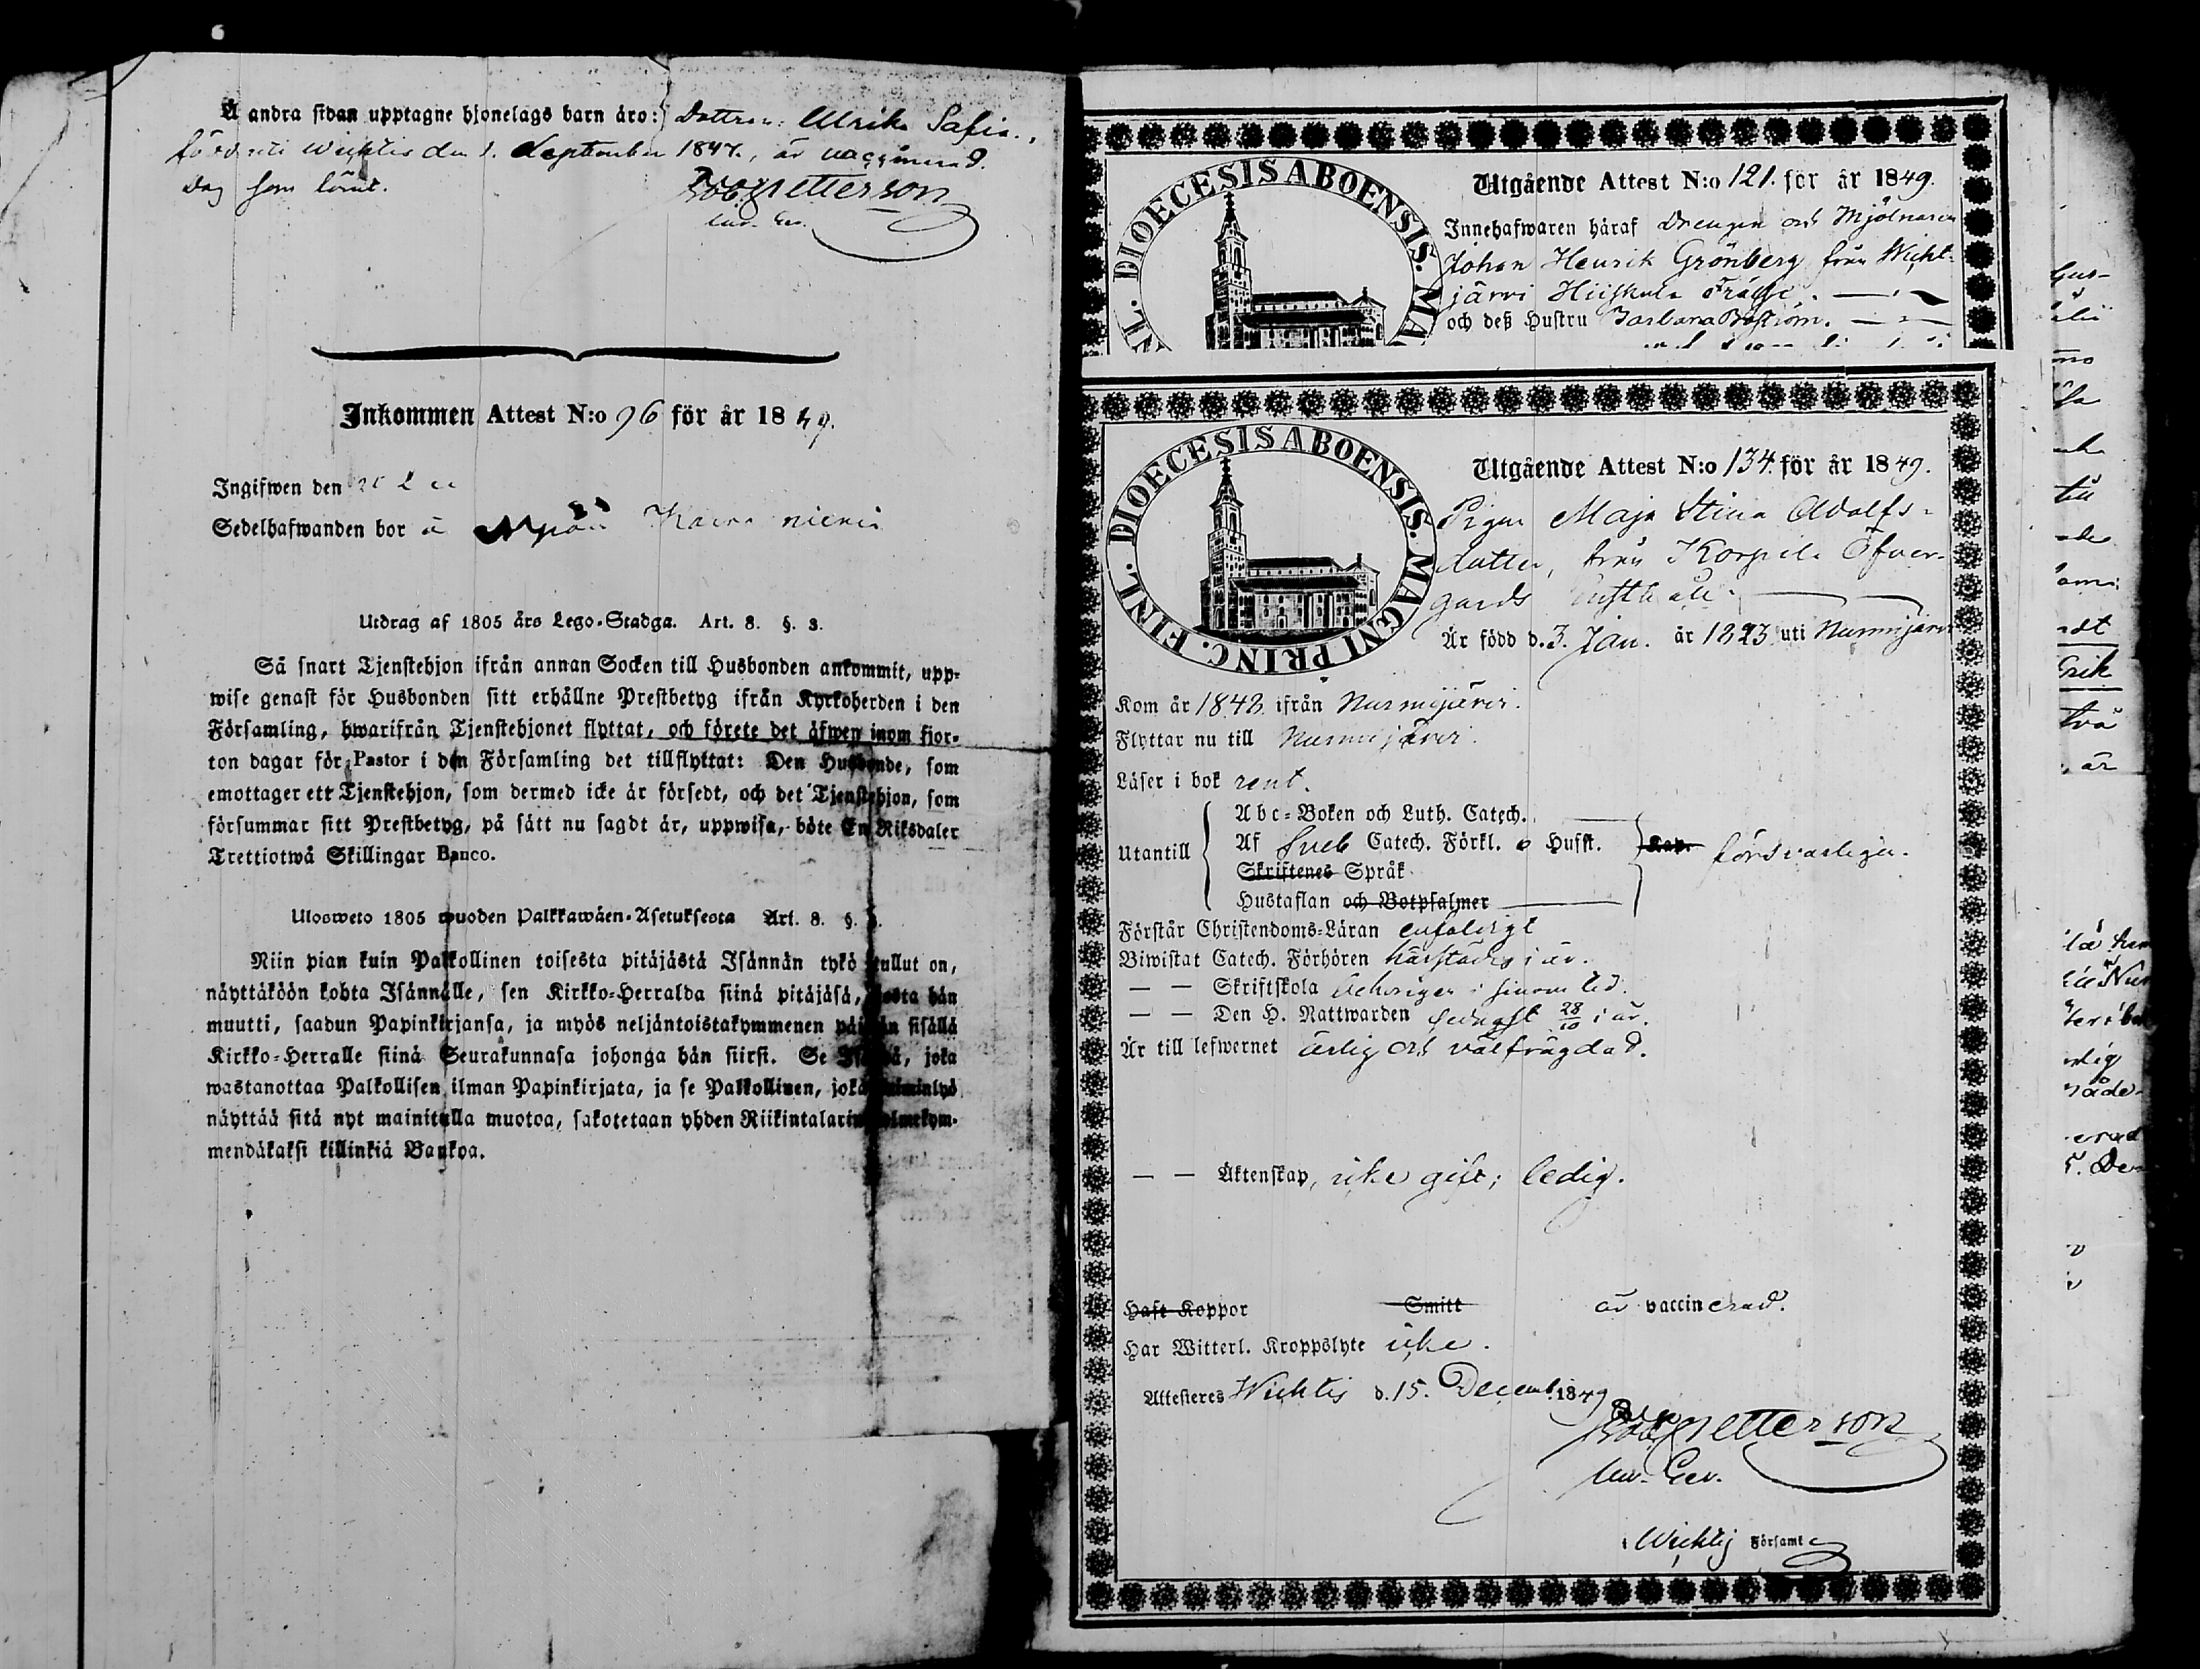 Å andra sidan upptagne hjonelags barn äro: Dottren: Ulrika Safia,
född uti Wichtis den 1. September 1847., är vaccinerad.
Dag som länt.
Petterson
Inkommen Attest N:o 96 för år 1849.
Ingifwen den
Sedelhafwanden bor å
Utdrag af 1805 års Lego-Stadga. Art. 8. §. 3.
Så snart Tjenstehjon ifrån annan Socken till Husbonden ankommit, upp-
wise genast för Husbonden sitt erhållne Prestbetyg ifrån Kyrkoherden i den
Församling, hwarifrån Tjenstehjonet flyttat, och förete det äfwen inom fjor-
ton dagar för Pastor i den Församling det tillflyttat: Den Husbonde, som
emottager ett Tjenstehjon, som dermed icke är försedt, och det Tjenstehjon, som
försummar sitt Prestbetyg, på sätt nu sagdt är, uppwisa, böte En Riksdaler
Trettiotwå Skillingar Banco.
Ulosweto 1805 wuoden Palkkawäen-Asetuksesta Art. 8. §.
Niin pian kuin Palkollinen toisesta pitäjästä Isännän tykö tullut on,
näyttäköön kohta Isännälle, sen Kirkko-Herralda siinä pitäjäsä, josta hän
muutti, saadun Papinkirjansa, ja myös neljäntoistakymmenen päiwän sisällä
Kirkko-Herralle siinä Seurakunnasa johonga hän siirsi. Se Isändä, joka
wastanottaa Palkollisen ilman Papinkirjata, ja se Palkollinen, joka laiminlyö
näyttää sitä nyt mainitulla muotoa, sakotetaan yhden Riikintalarin kolmekym-
mendäkaksi killinkiä Bankoa.
FINL. DIOECESIS ABOENSIS. MA
Utgående Attest N:o 121. för år 1849.
Innehafwaren häraf Drengen och Mjölnaren
Johan Henrik Grönberg från Wicht-
järvi Hiiskula Frälse.
och deß Hustru Barbara Boström.
FINL. DIOECESIS ABOENSIS. MAGNI PRINC.
Utgående Attest N:o 134. för år 1849.
Pigan Maja Stina Adolfs-
dotter, från Korpila Öfver-
gårds
Är född d. 3. Jan. år 1823 uti Nurmijärvi
Kom år 1848 ifrån Nurmijärvi.
Flyttar nu till Nurmijärvi.
Läser i bok rent.
Abc-Boken och Luth. Catech.
Utantill Af Sveb Catech. Förkl. o Hufst. Kap. försvarligen.
Skriftenes Språk
Hustaflan och Botpsalmer
Förstår Christendoms-Läran enfaldigt
Biwistat Catech. Förhören härstädes i år.
— — Skriftskola behörigen i sinom tid.
— — Den H. Nattwarden sednast 28/10 i år.
Är till lefwernet ärlig och välfrägdad.
— — Äktenskap, icke gift; ledig.
Haft Koppor Smitt är vaccinerad.
Har Witterl. Kroppslyte icke.
Attesteres Wichtis d. 15. Decemb. 1849
Petterson
i Wichtis Församl.